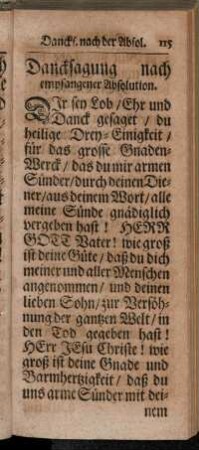 Dancks. nach der Absol. 115
Dancksagung nach
empfangener Absolution.
DIr sey Lob / Ehr und
Danck gesaget / du
heilige Drey-Einigkeit /
für das grosse Gnaden-
Werck / das du mir armen
Sünder / durch deinen Die-
ner / aus deinem Wort / alle
meine Sünde gnädiglich
vergeben hast! HERR
GOTT Vater! wie groß
ist deine Güte / daß du dich
meiner und aller Menschen
angenommen / und deinen
lieben Sohn / zur Versöh-
nung der gantzen Welt / in
den Tod gegeben hast!
HErr JEsu Christe! wie
groß ist deine Gnade und
Barmhertzigkeit / daß du
uns arme Sünder mit dei-
nem